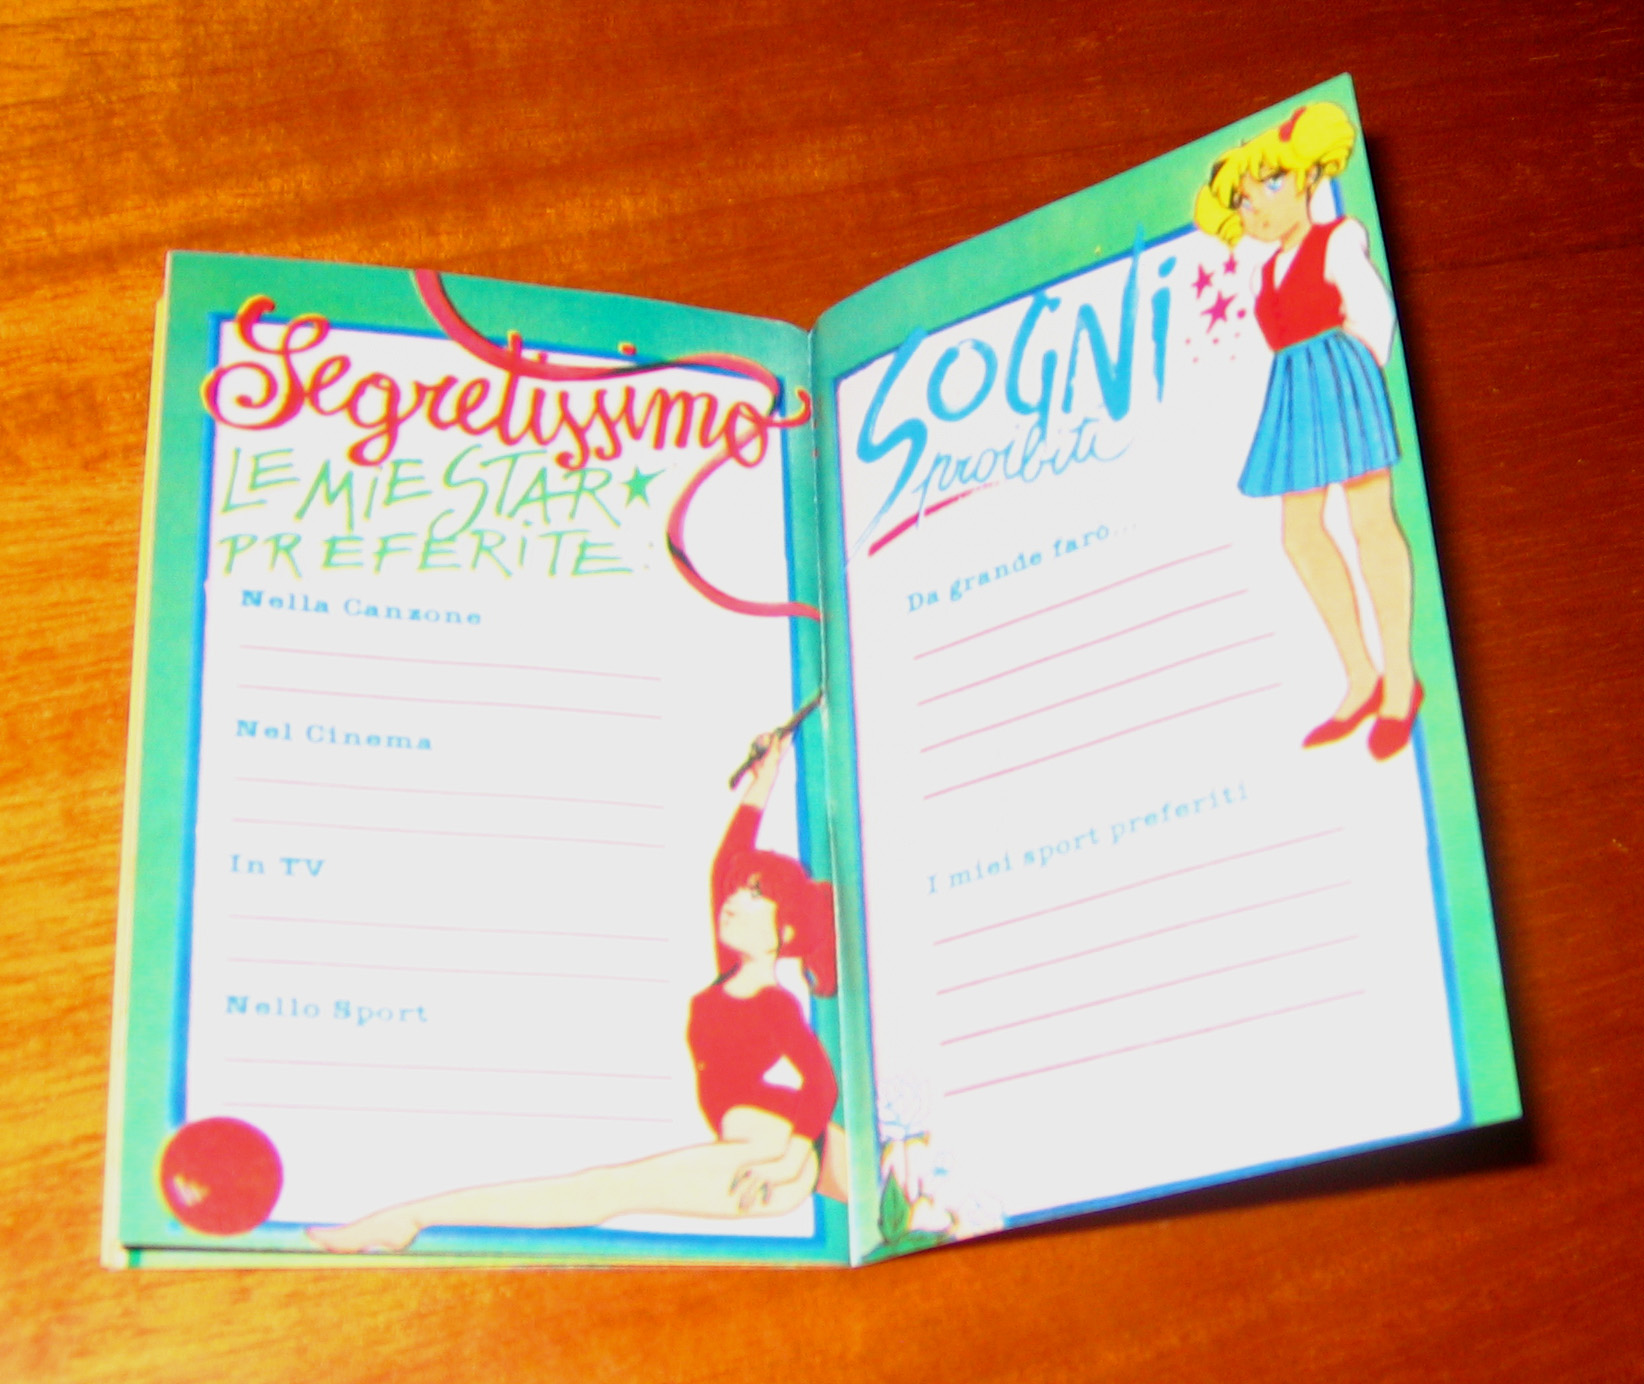 Segretissimo
LE MiE STAR
PREFERiTE:
Nella Canzone
Nel Cinema
In TV
Nello Sport
SOGNi
proibiti
Da grande farò...
I miei sport preferiti